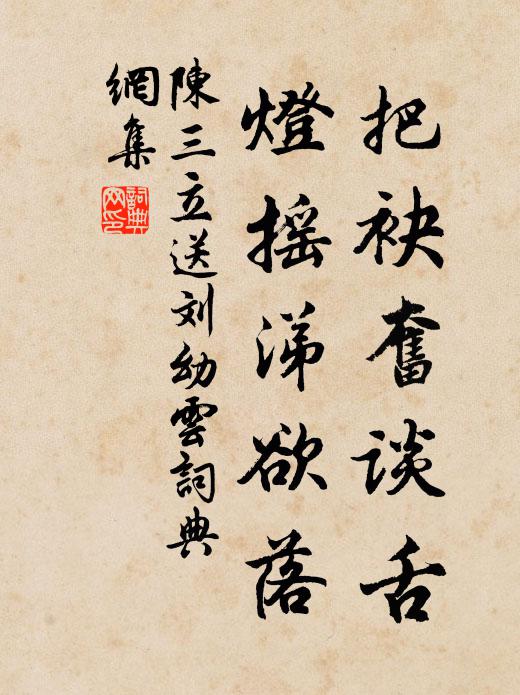 把袂奮談舌
燈摇涕欲落
陳三立送刘幼雲詞典
網集
詞典
网印